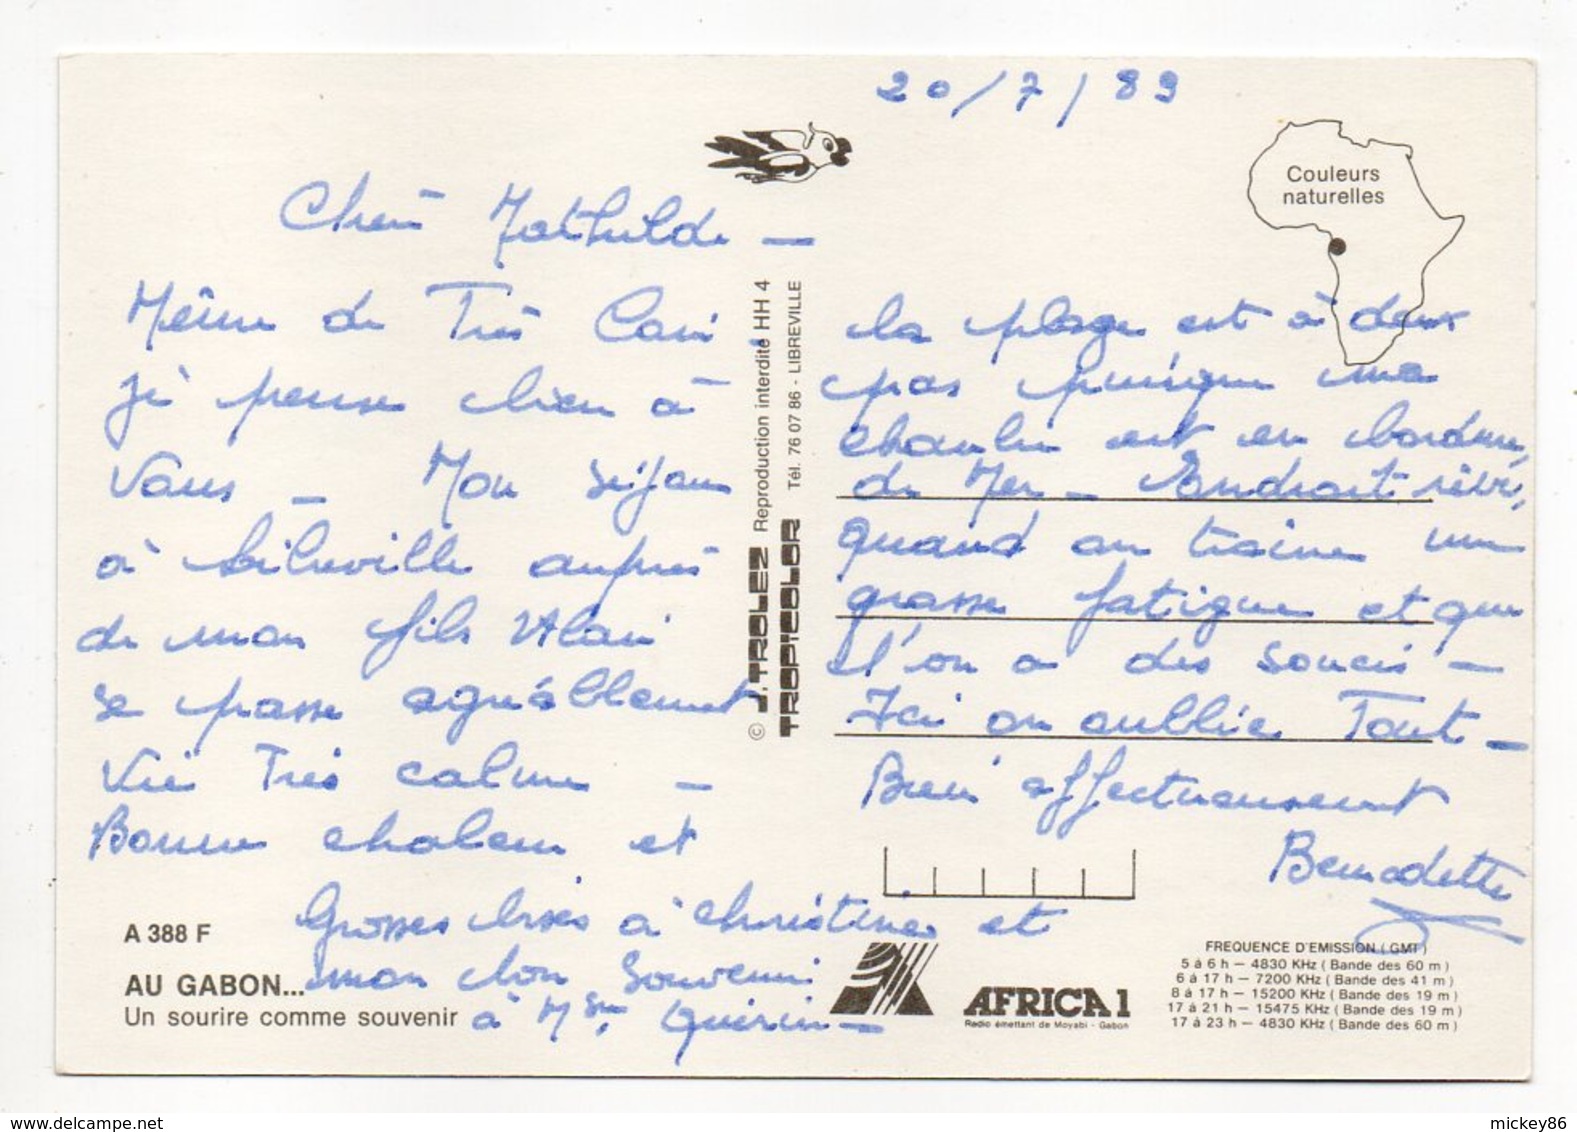 20/7/89
Couleurs
naturelles
Chère Mathilde —
Même de Très Loin
je pense bien à
Vous — Mon séjour
à Libreville auprès
de mon fils Alain
se passe agréablement
Vie Très calme —
Bonne chaleur et
la plage est à deux
pas puisque ma
chambre est en bordure
de Mer — Endroit rêvé,
quand on traine une
grosse fatigue et que
l'on a des soucis —
Ici on oublie Tout —
Bien affectueusement
Bernadette
Grosses bises à Christine et
mon bon souvenir
à Mr Guérin —
© J. TROLEZ Reproduction interdite HH 4
TROPICOLOR Tél. 76 07 86 - LIBREVILLE
A 388 F
AU GABON...
Un sourire comme souvenir
AFRICA 1
Radio émettant de Moyabi - Gabon
FREQUENCE D'EMISSION (GMT)
5 à 6 h — 4830 KHz (Bande des 60 m)
6 à 17 h — 7200 KHz (Bande des 41 m)
8 à 17 h — 15200 KHz (Bande des 19 m)
17 à 21 h — 15475 KHz (Bande des 19 m)
17 à 23 h — 4830 KHz (Bande des 60 m)
delcampe.net
mickey86